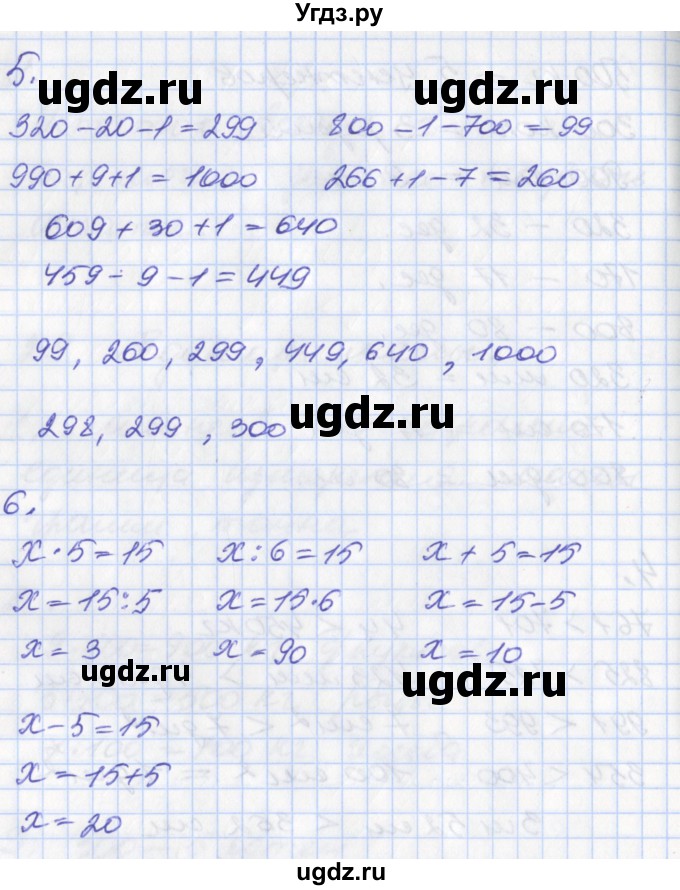 Угдз.ру
5.
ugdz.ru ugdz.ru
320-20-1=299 800-1-700=99
990+9+1=1000 266+1-7=260
609+30+1=640
459-9-1=449
99, 260, 299, 449, 640, 1000
ugdz.ru
298, 299, 300
6.
x·5=15 x:6=15 x+5=15
x=15:5 x=15·6 x=15-5
x=3 x=90 x=10
ugdz.ru ugdz.ru
x-5=15
x=15+5
x=20
ugdz.ru